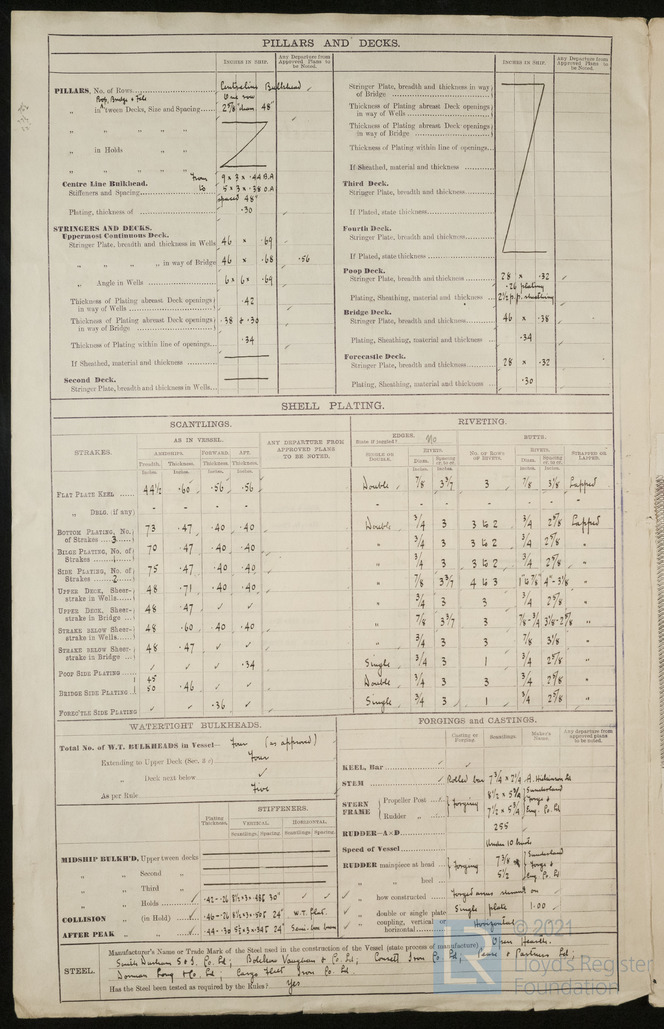 PILLARS AND DECKS.
INCHES IN SHIP.
Any Departure from Approved Plans to be Noted.
PILLARS, No. of Rows
Centreline Bulkhead
Poop, Bridge & Fcle
One row
„ in 'tween Decks, Size and Spacing
2 5/8" 48"
„ „ „ „
„ in Holds „ „
„ „ „ „
Centre Line Bulkhead.
from 9 x 3 x .44 B.A
Stiffeners and Spacing
to 5 x 3 x .38 O.A
spaced 48"
Plating, thickness of
.30
STRINGERS AND DECKS.
Uppermost Continuous Deck.
Stringer Plate, breadth and thickness in Wells
46 x .69
„ „ „ „ in way of Bridge
46 x .68 .56
„ Angle in Wells
6 x 6 x .69
Thickness of Plating abreast Deck openings in way of Wells
.42
Thickness of Plating abreast Deck openings in way of Bridge
.38 & .30
Thickness of Plating within line of openings
.34
If Sheathed, material and thickness
Second Deck.
Stringer Plate, breadth and thickness in Wells
INCHES IN SHIP
Any Departure from Approved Plans to be Noted.
Stringer Plate, breadth and thickness in way of Bridge
Thickness of Plating abreast Deck openings in way of Wells
Thickness of Plating abreast Deck openings in way of Bridge
Thickness of Plating within line of openings
If Sheathed, material and thickness
Third Deck.
Stringer Plate, breadth and thickness
If Plated, state thickness
Fourth Deck.
Stringer Plate, breadth and thickness
If Plated, state thickness
Poop Deck.
Stringer Plate, breadth and thickness
28 x .32
.26 plating
Plating, Sheathing, material and thickness
2 1/2 p.p. sheathing
Bridge Deck.
Stringer Plate, breadth and thickness
46 x .38
Plating, Sheathing, material and thickness
.34
Forecastle Deck.
Stringer Plate, breadth and thickness
28 x .32
Plating, Sheathing, material and thickness
.30
SHELL PLATING.
SCANTLINGS.
RIVETING.
STRAKES.
AS IN VESSEL.
ANY DEPARTURE FROM APPROVED PLANS TO BE NOTED.
EDGES.
State if joggled?
No
BUTTS.
AMIDSHIPS. FORWARD. AFT.
Breadth. Thickness. Thickness. Thickness.
Inches. Inches. Inches. Inches.
DOUBLE OR SINGLE.
RIVETS.
NO. OF ROWS OF RIVETS.
RIVETS.
STRAPPED OR LAPPED.
Diam. Spacing
Inches. Inches.
FLAT PLATE KEEL 44 1/2 .60 .56 .56 Double 7/8 3 3/7 3 7/8 3 1/8 Lapped
„ DBLG. (if any) - - - - - - - - - - -
BOTTOM PLATING, No. of Strakes 3 73 .47 .40 .40 Double 3/4 3 3 to 2 3/4 2 5/8 Lapped
BILGE PLATING, No. of Strakes 1 70 .47 .40 .40 „ 3/4 3 3 to 2 3/4 2 5/8 „
SIDE PLATING, No. of Strakes 2 75 .47 .40 .40 „ 3/4 3 3 to 2 3/4 2 5/8 „
UPPER DECK, Sheer-strake in Wells 48 .71 .40 .40 „ 7/8 3 3/7 4 to 3 1" to 7/8" 4"-3 1/8 „
UPPER DECK, Sheer-strake in Bridge 48 .47 ✓ ✓ „ 3/4 3 3 3/4 2 5/8 „
STRAKE BELOW Sheer-strake in Wells 48 .60 .40 .40 „ 7/8 3 3/7 3 7/8-3/4 3 1/8-2 5/8 „
STRAKE BELOW Sheer-strake in Bridge 48 .47 ✓ ✓ „ 3/4 3 3 7/8 3 1/8 „
POOP SIDE PLATING ✓ ✓ ✓ .34 Single 3/4 3 1 3/4 2 5/8 „
BRIDGE SIDE PLATING 45 50 .46 ✓ ✓ Double 3/4 3 3 3/4 2 5/8 „
FORECTLE SIDE PLATING ✓ ✓ .36 ✓ Single 3/4 3 1 3/4 2 5/8 „
WATERTIGHT BULKHEADS.
Total No. of W.T. BULKHEADS in Vessel— Four (as approved)
Extending to Upper Deck (Sec. 3 c) Four
„ Deck next below ✓
As per Rule Five
Plating Thickness.
STIFFENERS.
VERTICAL. HORIZONTAL.
Scantlings. Spacing. Scantlings. Spacing.
MIDSHIP BULKH'D, Upper tween decks
„ „ Second „
„ „ Third „
„ „ Holds .42-.26 30" ✓ ✓
COLLISION „ (in Hold) .46-.26 24" W.T. flat.
AFTER PEAK „ „ .44-.30 24"
FORGINGS and CASTINGS.
Casting or Forging. Scantlings. Maker's Name. Any departure from approved plans to be noted.
KEEL, Bar ✓ ✓
STEM Rolled bar 7 3/4 x 2 1/4
STERN FRAME
Propeller Post Forging 8 1/2 x 5 3/4 Sunderland Forge &
Rudder „ 7 1/2 x 5 3/4 Eng. Co. Ld
RUDDER—A×D 255
Speed of Vessel Under 10 knots
RUDDER mainpiece at head Forging 7 3/8 Sunderland
„ „ heel 5 1/2 Forge & Eng. Co. Ld
„ how constructed Forged arms shrunk on
„ double or single plate Single plate 1.00
„ coupling, vertical or horizontal Horizontal
STEEL.
Manufacturer's Name or Trade Mark of the Steel used in the construction of the Vessel (state process of manufacture) Open Hearth.
Smith Durham S & I. Co. Ld; Bolckow Vaughan & Co. Ld; Consett Iron Co Ld; Pease & Partners Ld;
Dorman Long & Co. Ld; Cargo Fleet Iron Co. Ld.
Has the Steel been tested as required by the Rules? Yes
© 2021
LR
Lloyd's Register
Foundation